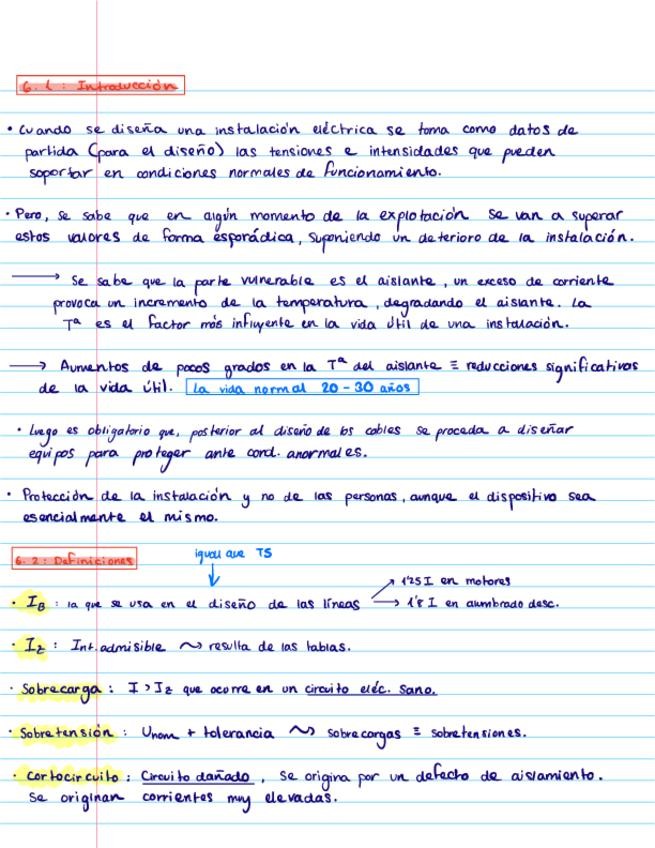 6.1: Introducción
• Cuando se diseña una instalación eléctrica se toma como datos de
partida (para el diseño) las tensiones e intensidades que pueden
soportar en condiciones normales de funcionamiento.
• Pero, se sabe que en algún momento de la explotación se van a superar
estos valores de forma esporádica, suponiendo un deterioro de la instalación.
→ Se sabe que la parte vulnerable es el aislante, un exceso de corriente
provoca un incremento de la temperatura, degradando el aislante. La
Tª es el factor más influyente en la vida útil de una instalación.
→ Aumentos de pocos grados en la Tª del aislante ≡ reducciones significativas
de la vida útil. La vida normal 20-30 años
• Luego es obligatorio que, posterior al diseño de los cables se proceda a diseñar
equipos para proteger ante cond. anormales.
• Protección de la instalación y no de las personas, aunque el dispositivo sea
esencialmente el mismo.
6.2: Definiciones
igual que TS
• I_B: la que se usa en el diseño de las líneas → 1'25 I en motores
→ 1'8 I en alumbrado desc.
• I_z: Int. admisible ⤳ resulta de las tablas.
• Sobrecarga: I > I_z que ocurre en un circuito eléc. sano.
• Sobretensión: Unom + tolerancia ⤳ sobrecargas ≡ sobretensiones.
• Cortocircuito: Circuito dañado, se origina por un defecto de aislamiento.
Se originan corrientes muy elevadas.